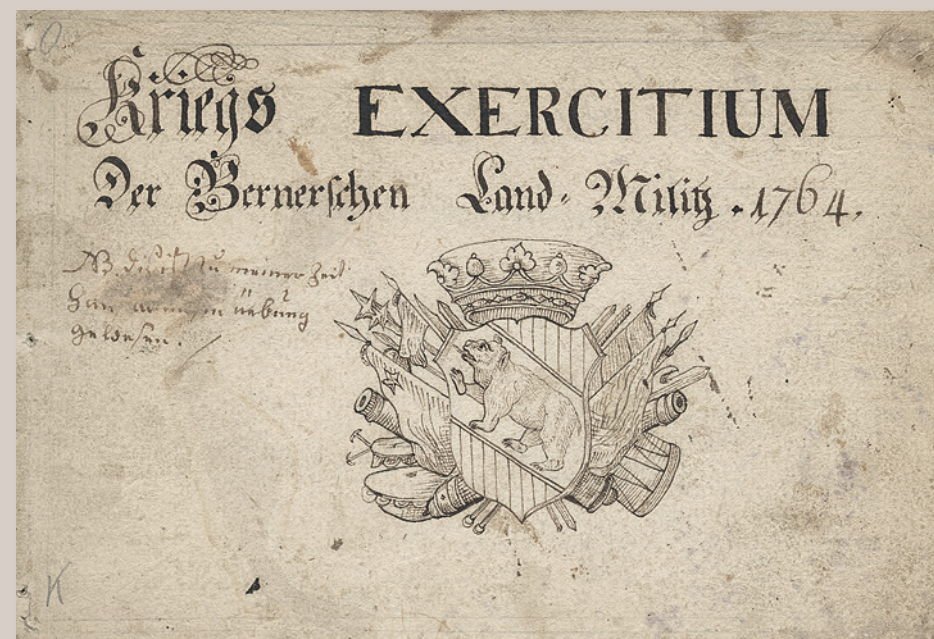 Kriegs EXERCITIUM
Der Bernerschen Land-Militz . 1764.
NB dis ist zu meiner Zeit
übung
gewesen.
K